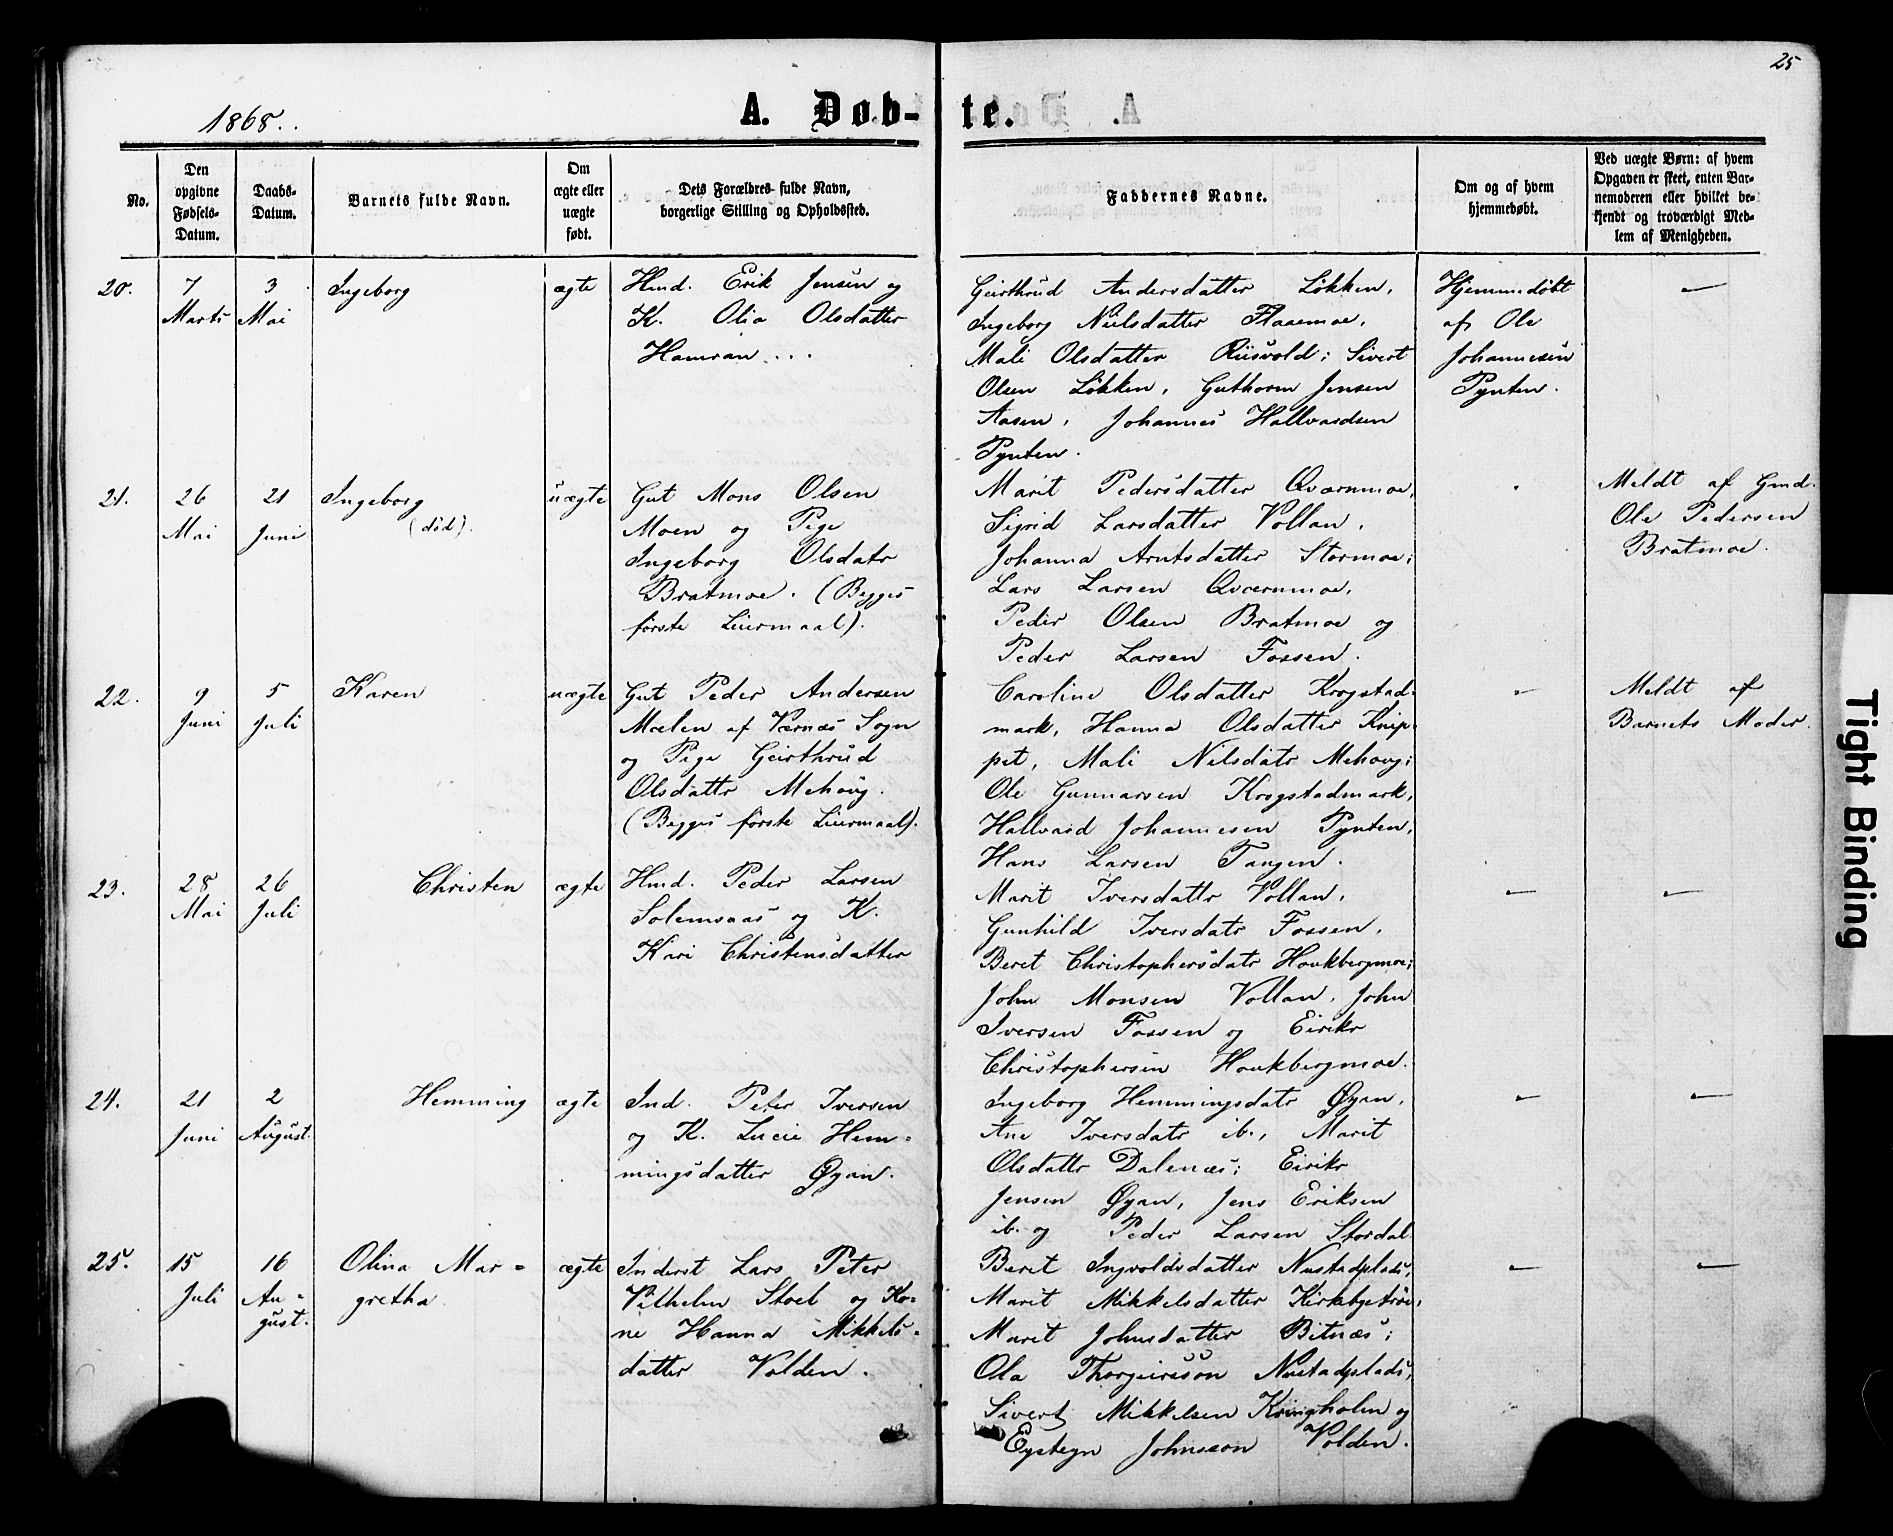 25
1868.
A. Døb-te.
No.
Den opgivne Fødsels-Datum.
Daabs-Datum.
Barnets fulde Navn.
Om ægte eller uægte født.
Dets Forældres fulde Navn, borgerlige Stilling og Opholdssted.
Faddernes Navne.
Om og af hvem hjemmedøbt.
Ved uægte Børn: af hvem Opgaven er skeet, enten Barnemoderen eller hvilket bekjendt og troværdigt Medlem af Menigheden.
20.
7 Marts
3 Mai
Ingeborg
ægte
Hmd. Erik Jensen og
K. Olia Olsdatter
Hamran ...
Geirthrud Andersdatter Løkken,
Ingeborg Nielsdatter Flaaemoe,
Mali Olsdatter Riisvold; Sivert
Olsen Løkken, Guthorm Jensen
Aasen, Johannes Hallvardsen
Pynten.
Hjemmedøbt
af Ole
Johannesen
Pynten.
—
21.
26 Mai
21 Juni
Ingeborg
(død).
uægte
Gut Mons Olsen
Moen og Pige
Ingeborg Olsdatr
Bratmoe. (Begges
første Leiermaal).
Marit Pedersdatter Qværnmoe,
Sigrid Larsdatter Vollan,
Johanna Arntsdatter Stormoe;
Lars Larsen Qværnmoe,
Peder Olsen Bratmoe og
Peder Larsen Fossen.
Meldt af Gmd.
Ole Pedersen
Bratmoe.
22.
9 Juni
5 Juli
Karen
uægte
Gut Peder Andersen
Mælen af Værnæs Sogn
og Pige Geirthrud
Olsdattr Mehoug.
(Begges første Leiermaal).
Caroline Olsdatter Krogstad-
mark, Hanna Olsdatter Knip-
pet, Mali Nilsdatr Mehoug;
Ole Gunnarsen Krogstadmark,
Hallvard Johannesen Pynten,
Hans Larsen Tangen.
—
Meldt af
Barnets Moder.
23.
28 Mai
26 Juli
Christen
ægte
Hmd. Peder Larsen
Solemsaas og K.
Kari Christensdatter
Marit Iversdattr Vollan,
Gunhild Iversdatr Fossen,
Beret Christophersdatr Houkbergmoe;
John Monsen Vollan, John
Iversen Fossen og Eirikr
Christophersen Houkbergmoe.
—
—
24.
21 Juni
2 August.
Hemming
ægte
Ind. Peter Iversen
og K. Lucie Hem-
mingsdatter Øyan.
Ingeborg Hemmingsdatr Øyan,
Ane Iversdatr ib., Marit
Olsdattr Dalenæs; Eirikr
Jensen Øyan, Jens Eriksen
ib. og Peder Larsen Stordal
—
—
25.
15 Juli
16 Au-
gust.
Olina Mar-
gretha
ægte
Inderst Lars Peter
Vilhelm Stoel og Ko-
ne Hanna Mikkels-
datter Volden.
Beret Ingvoldsdatter Nustadplads,
Marit Mikkelsdatter Kirkebytrøe,
Marit Johnsdatter Bitnæs;
Ola Thorgeirsson Nustadplads,
Sivert Mikkelsen Kringholm og
Eystegn Johnsson Volden.
—
—
Tight Binding